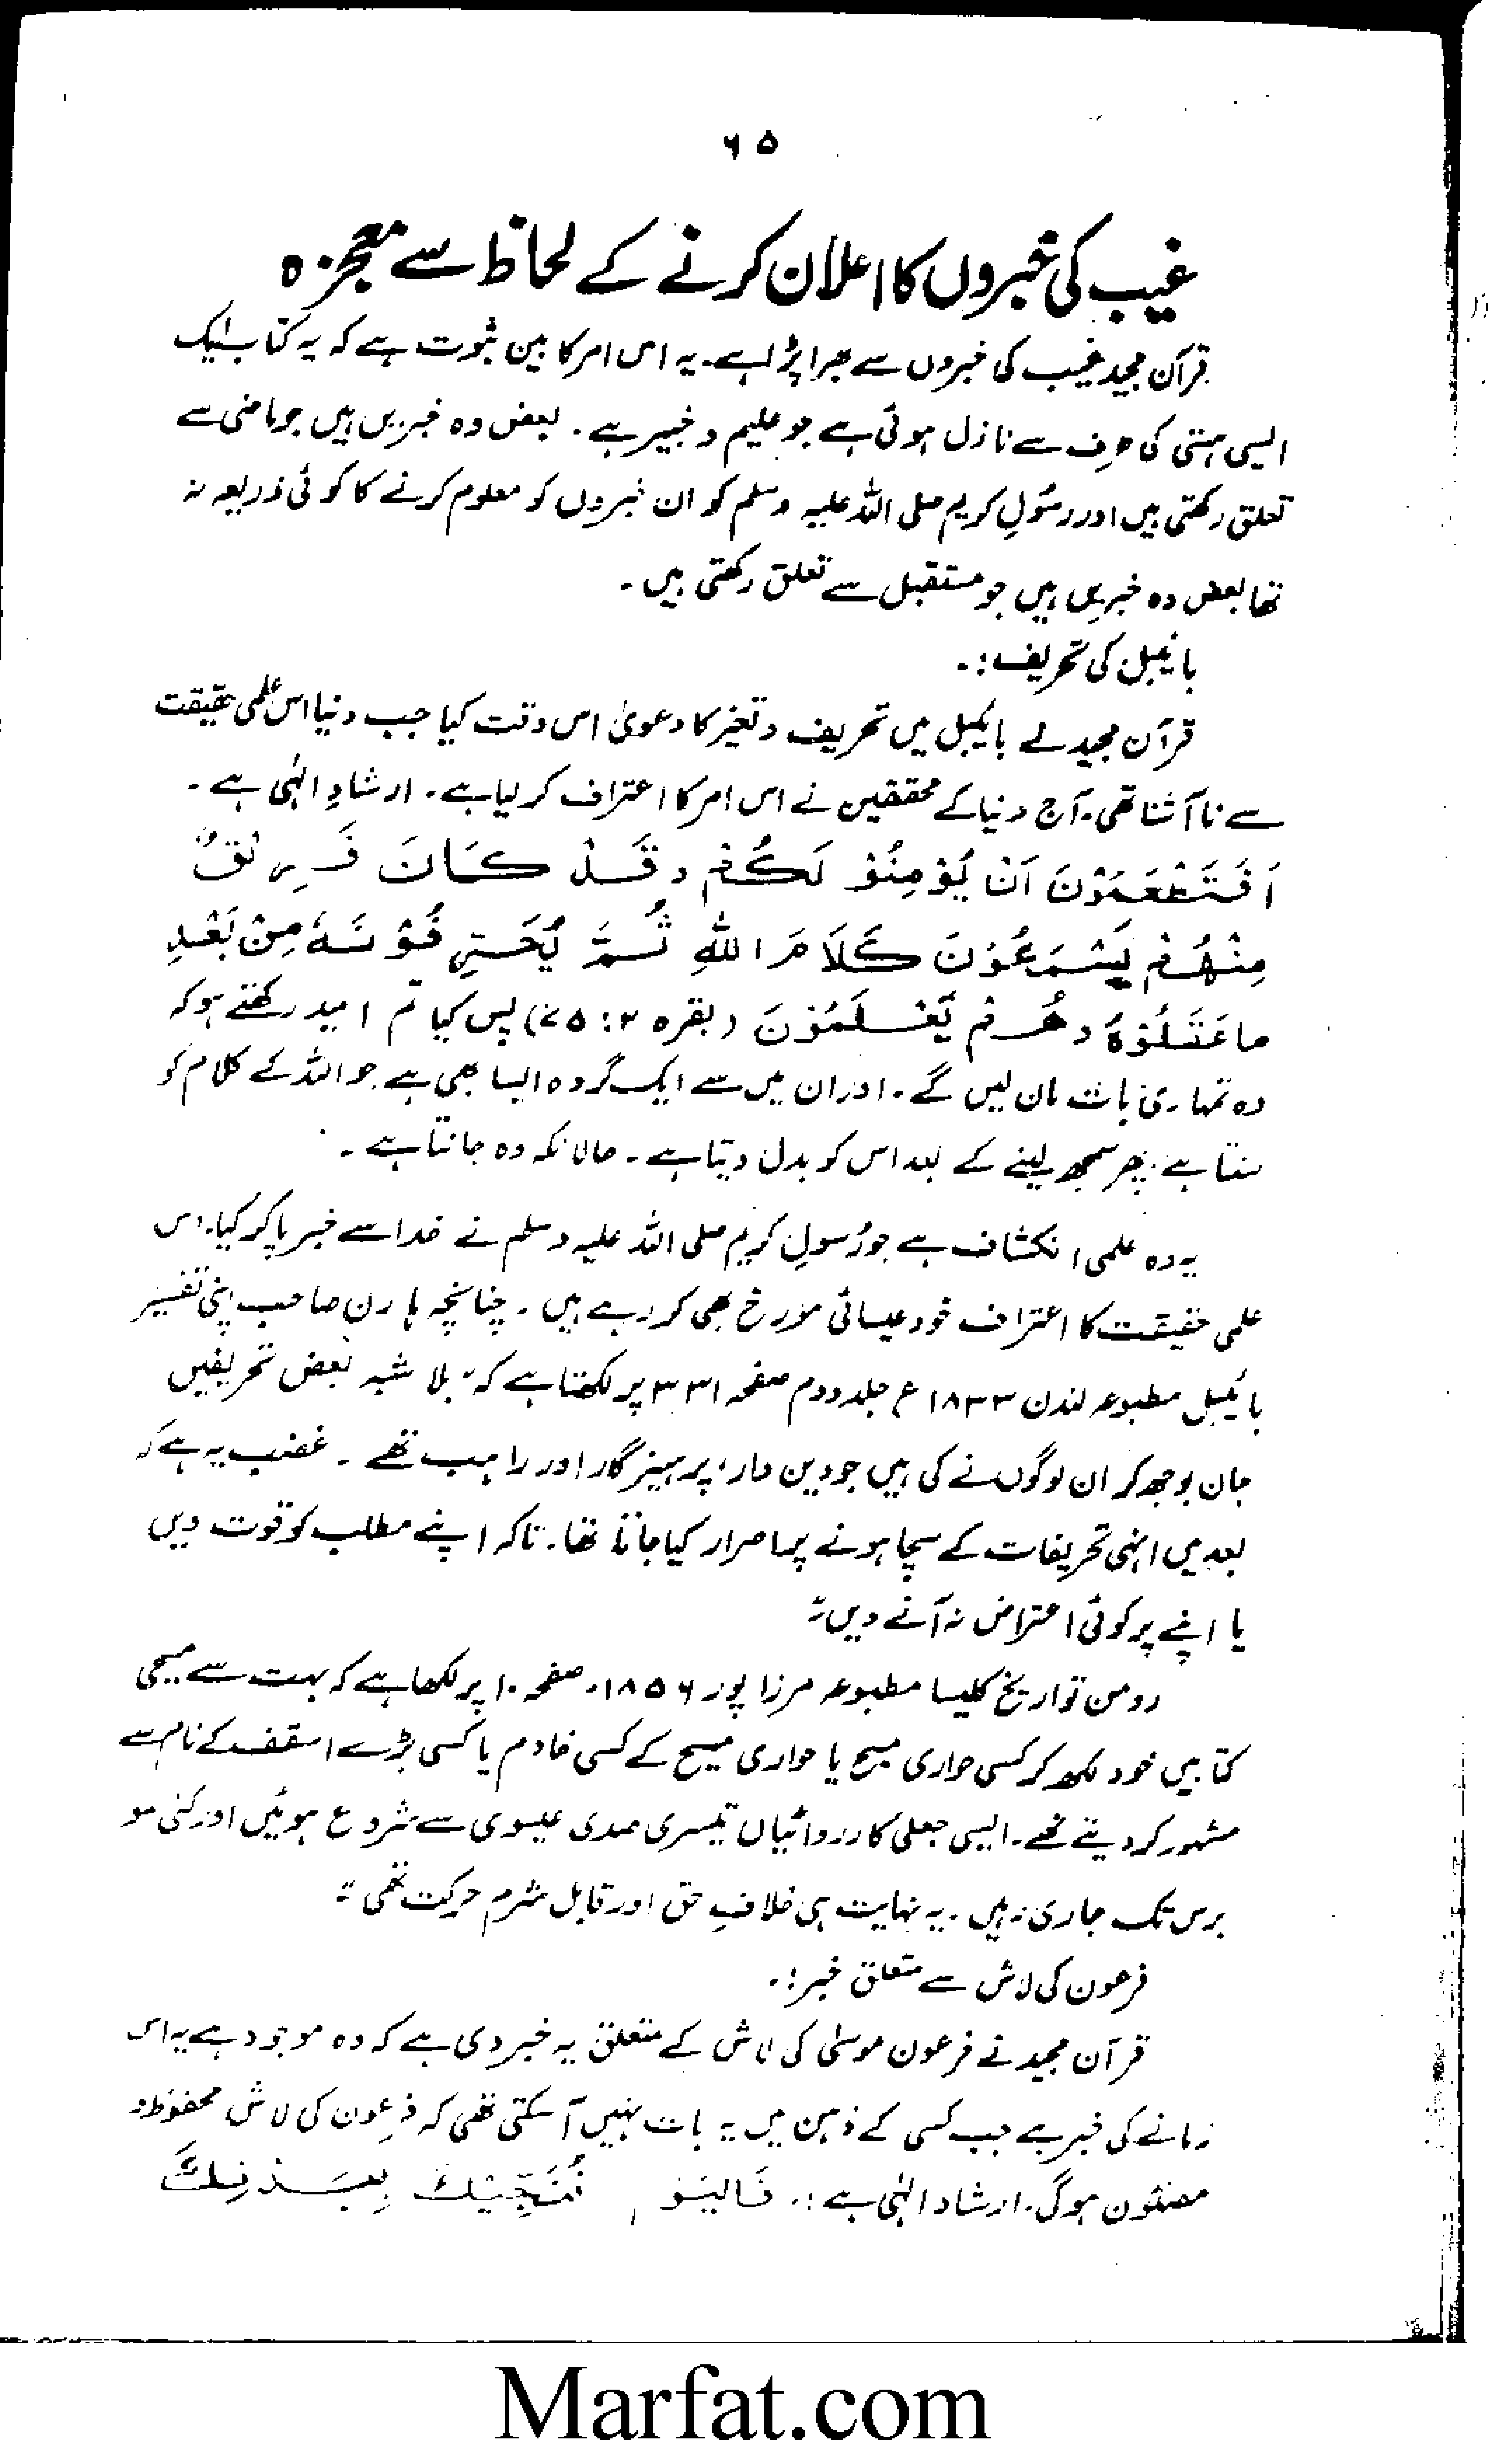 ۶۵
غیب کی خبروں کا اعلان کرنے کے لحاظ سے معجزہ
قرآن مجید غیب کی خبروں سے بھرا پڑا ہے۔ یہ اس امر کا بین ثبوت ہے کہ یہ کتاب ایک
ایسی ہستی کی طرف سے نازل ہوئی ہے جو علیم و خبیر ہے۔ بعض وہ خبریں ہیں جو ماضی سے
تعلق رکھتی ہیں اور رسُولِ کریم صلی اللہ علیہ وسلم کو ان خبروں کو معلوم کرنے کا کوئی ذریعہ نہ
تھا بعض وہ خبریں ہیں جو مستقبل سے تعلق رکھتی ہیں۔
بائیبل کی تحریف:۔
قرآن مجید نے بائیبل میں تحریف و تغیر کا دعویٰ اس وقت کیا جب دنیا اس علمی حقیقت
سے نا آشنا تھی۔ آج دنیا کے محققین نے اس امر کا اعتراف کر لیا ہے۔ ارشادِ الٰہی ہے۔
اَفَتَطْمَعُوْنَ اَنْ یُّؤْمِنُوْ لَکُمْ وَقَدْ کَانَ فَرِیْقٌ
مِنْهُمْ یَسْمَعُوْنَ کَلَامَ اللهِ ثُمَّ یُحَرِّفُوْنَهٗ مِنْ بَعْدِ
ما عَقَلُوْهُ وَهُمْ یَعْلَمُوْنَ (بقرہ ۲ : ۷۵) پس کیا تم امید رکھتے ہو کہ
وہ تمہاری بات مان لیں گے۔ اور ان میں سے ایک گروہ ایسا بھی ہے جو اللہ کے کلام کو
سنتا ہے پھر سمجھ لینے کے بعد اس کو بدل دیتا ہے۔ حالانکہ وہ جانتا ہے۔
یہ وہ علمی انکشاف ہے جو رُسولِ کریم صلی اللہ علیہ وسلم نے خدا سے خبر پا کر کیا۔ اس
علمی حقیقت کا اعتراف خود عیسائی مورخ بھی کر رہے ہیں۔ چنانچہ ہارن صاحب اپنی تفسیر
بائیبل مطبوعہ لندن ۱۸۳۳ء جلد دوم صفحہ ۳۳۱ پر لکھتا ہے کہ "بلا شبہ بعض تحریفیں
جان بوجھ کر ان لوگوں نے کی ہیں جو دین دار، پرہیز گار اور راہب تھے۔ غضب یہ ہے کہ
بعد میں انہی تحریفات کے سچا ہونے پر اصرار کیا جاتا تھا۔ تاکہ اپنے مطلب کو قوت دیں
یا اپنے پر کوئی اعتراض نہ آنے دیں"
رومن تواریخ کلیسا مطبوعہ مرزا پور ۱۸۵۶ء صفحہ ۱۰ پر لکھا ہے کہ بہت سے مسیحی
کتابیں خود لکھ کر کسی حواری مسیح یا حواری مسیح کے کسی خادم یا کسی بڑے اسقف کے نام سے
مشہور کر دیتے تھے۔ ایسی جعلی کارروائیاں تیسری صدی عیسوی سے شروع ہوئیں اور کئی سو
برس تک جاری رہیں۔ یہ نہایت ہی خلافِ حق اور قابل شرم حرکت تھی"
فرعون کی لاش سے متعلق خبر:۔
قرآن مجید نے فرعون موسیٰ کی لاش کے متعلق یہ خبر دی ہے کہ وہ موجود ہے یہ اس
زمانے کی خبر ہے جب کسی کے ذہن میں یہ بات نہیں آ سکتی تھی کہ فرعون کی لاش محفوظ و
مصئون ہوگی۔ ارشاد الٰہی ہے :۔ فَالیَوْمَ نُنَجِّیْكَ بِبَدَنِكَ
Marfat.com